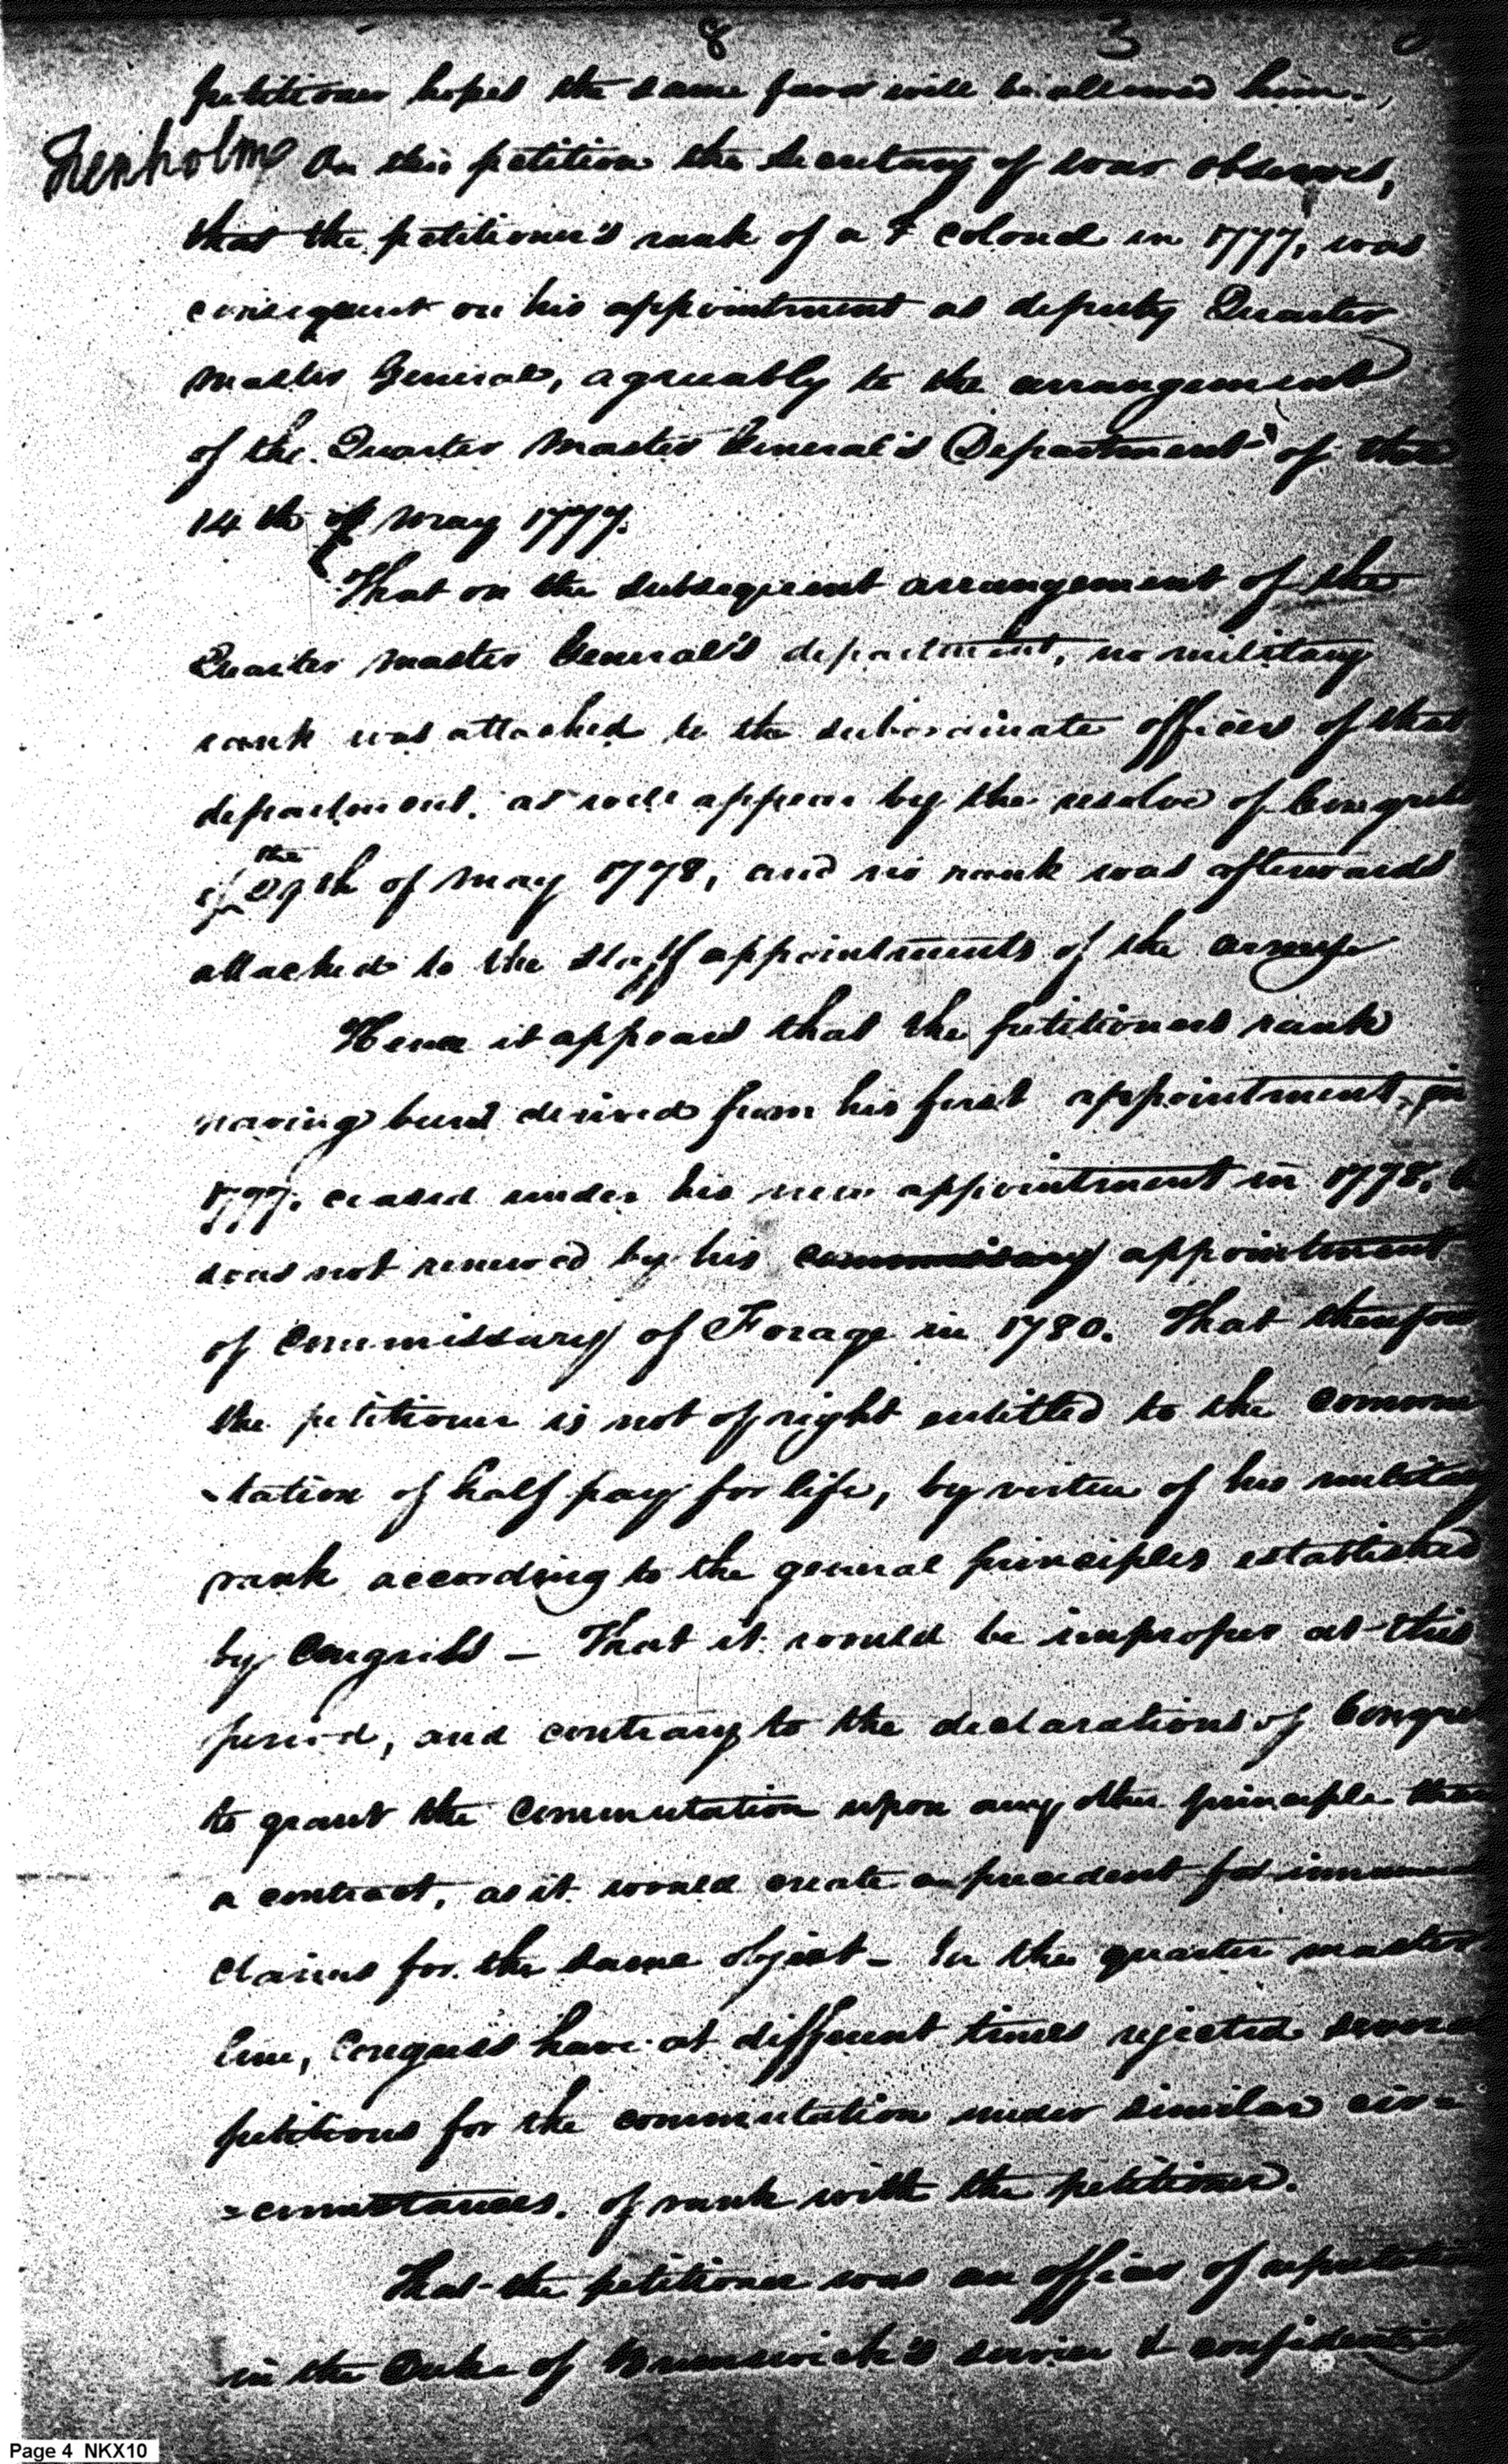 8 3
petitioner hopes the same favor will be allowed him.
On this petition the Secretary of war observes,
that the petitioner's rank of a colonel in 1777, was
consequent on his appointment as deputy Quarter
Master General, agreeably to the arrangement
of the Quarter Master General's Department of the
14th of May 1777.
That on the subsequent arrangement of the
Quarter Master General's department, no military
rank was attached to the subordinate officers of that
department. as will appear by the resolve of Congress
the
of 29th of May 1778, and no rank was afterwards
attached to the staff appointments of the army
Hence it appears that the petitioners rank
having been derived from his first appointment, in
1777, ceased under his new appointment in 1778, &
was not renewed by his commissary appointment
of Commissary of Forage in 1780. That therefore
the petitioner is not of right entitled to the commu
-tation of half pay for life, by virtue of his military
rank according to the general principles established
by Congress - That it would be improper at this
period, and contrary to the declarations of Congress
to grant the Commutation upon any other principle than
a contract, as it would create a precedent for
claims for the same object - In the quarter master
line, Congress have at different times rejected several
petitions for the commutation under similar cir=
=cumstances. of rank with the petitioner.
That the petitioner was an officer of reputation
in the Duke of Brunswick's service & confidential
Page 4 NKX10